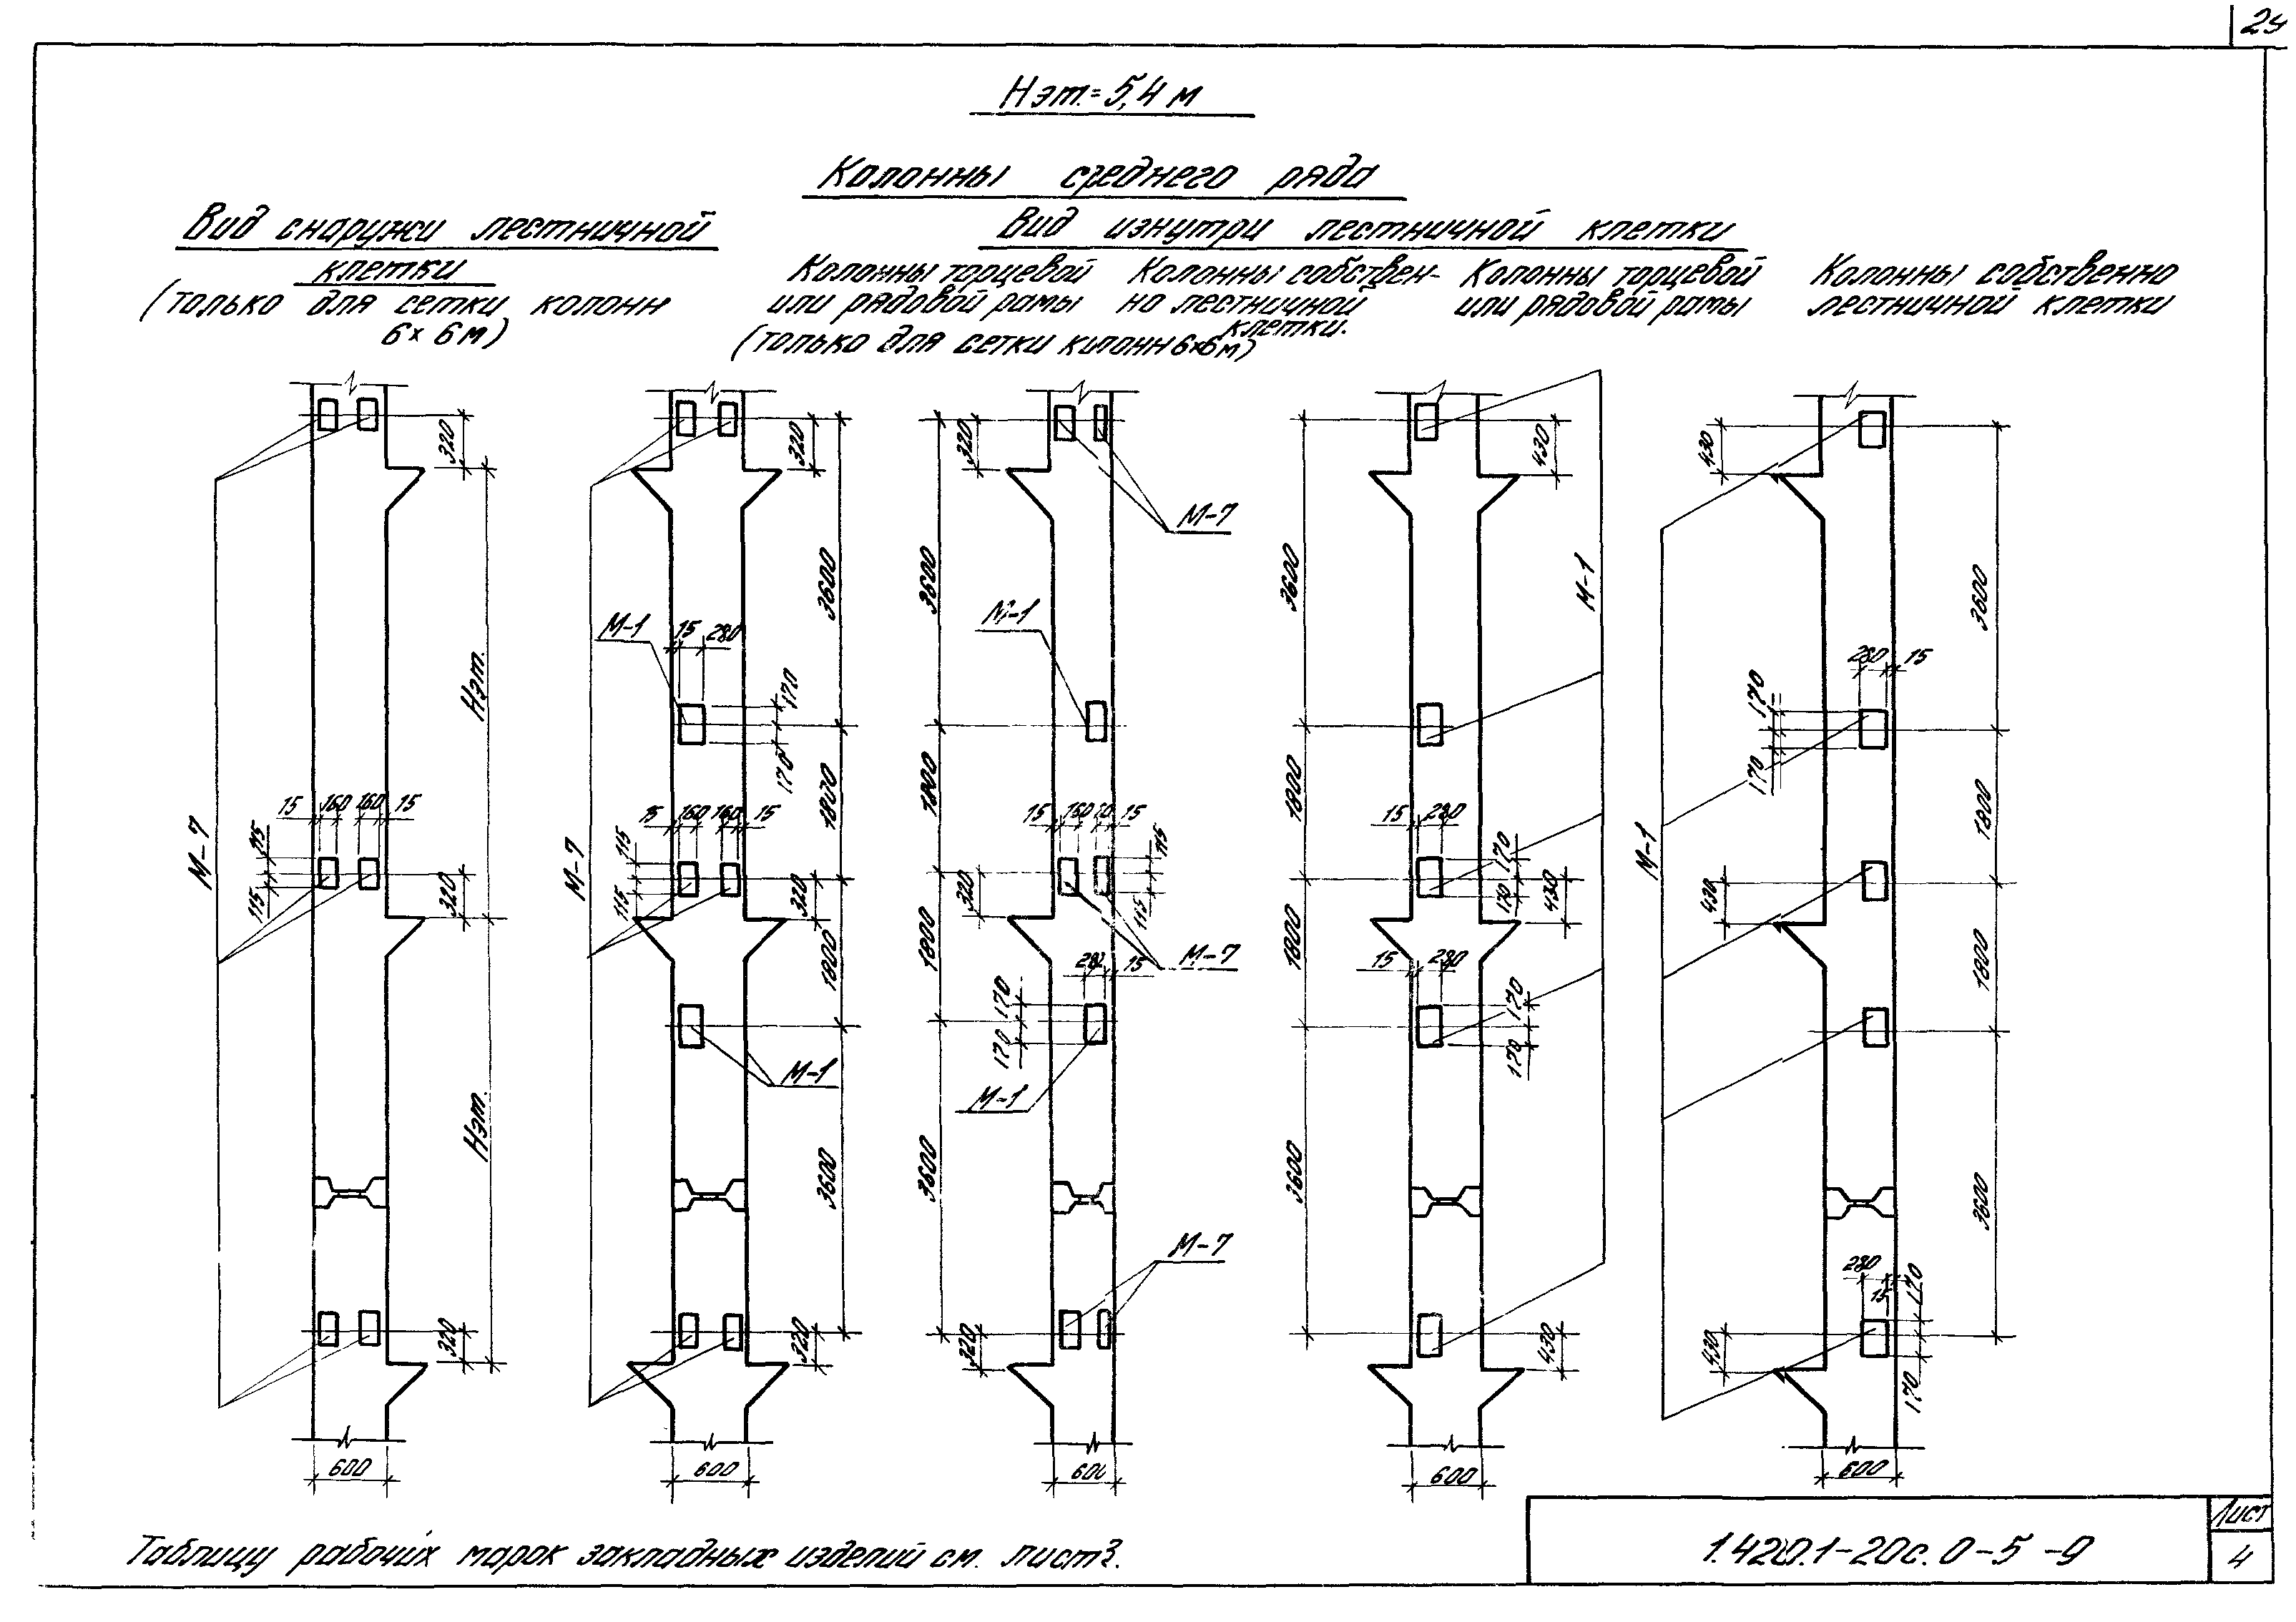 24
Нэт.=5,4 м
Колонны среднего ряда
Вид снаружи лестничной
клетки
(только для сетки колонн
6х6м)
Вид изнутри лестничной клетки
Колонны торцевой
или рядовой рамы
Колонны собствен-
но лестничной
клетки.
(только для сетки колонн 6х6м)
Колонны торцевой
или рядовой рамы
Колонны собственно
лестничной клетки
320
Нэт.
М-7
15 160 160 15
115
115
320
Нэт.
320
600
320
3600
М-1
15 280
170
170
1800
М-7
15 160 160 15
115
115
320
1800
М-1
3600
320
600
320
М-7
3600
М-1
1800
15 160 15
115
115
320
М-7
1800
280 15
170
170
М-1
3600
М-7
320
600
3600
430
М-1
1800
15 280
170
170
430
1800
15 280
170
170
3600
430
600
430
3600
280 15
170
170
1800
М-1
430
1800
3600
280
15
170
170
430
600
Таблицу рабочих марок закладных изделий см. лист 3.
1.420.1-20с.0-5-9
Лист
4